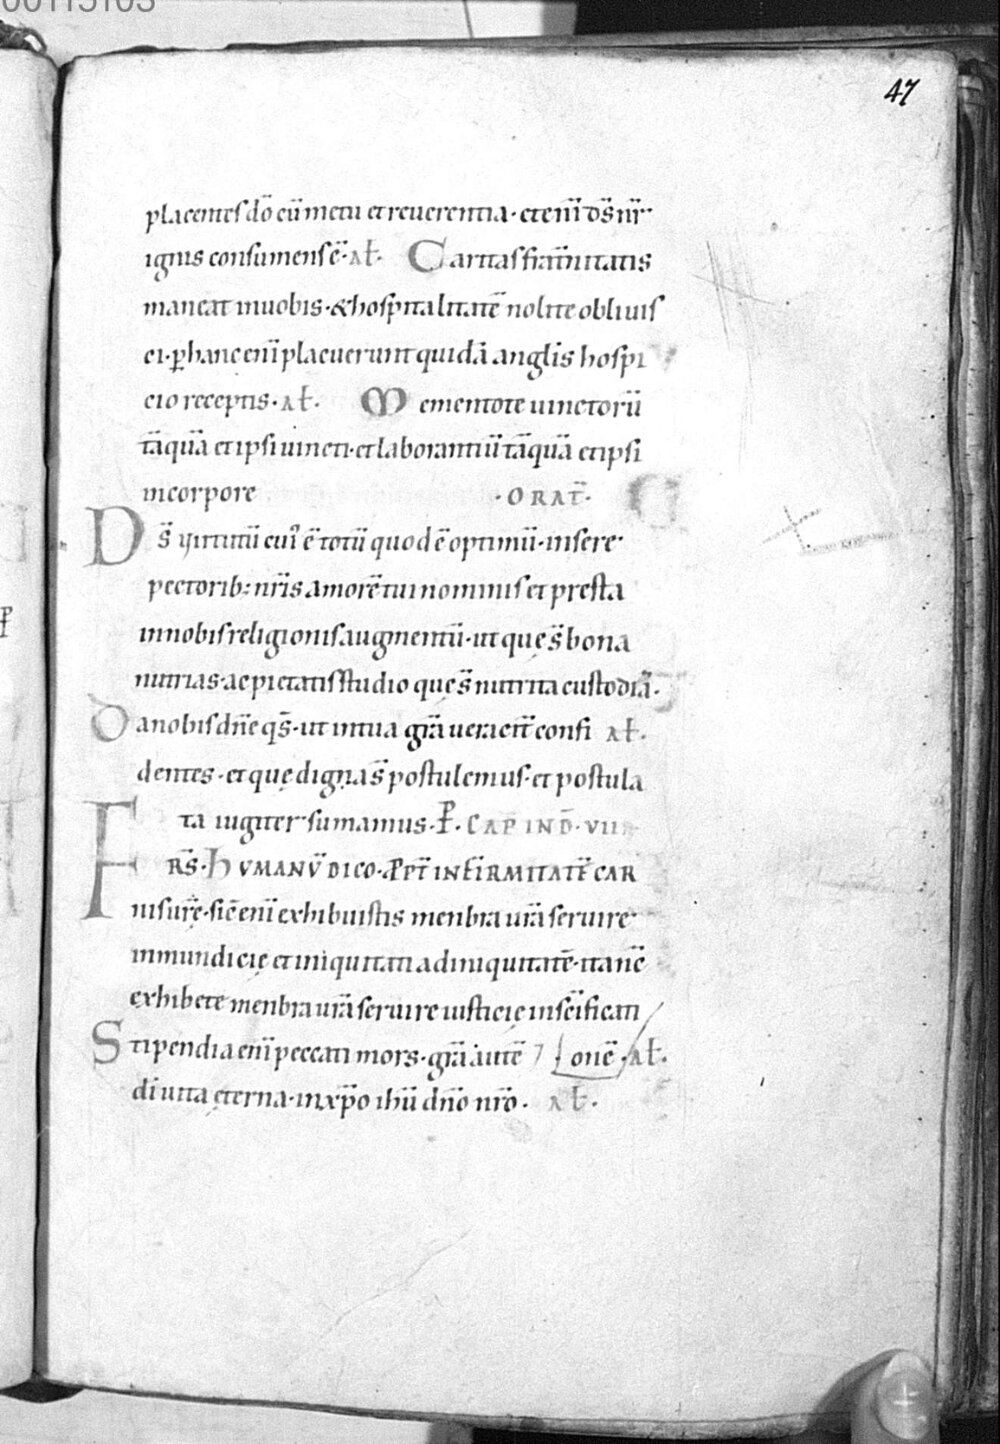 00113103
47
placentes dō cū metu et reuerentia · etenī ds̄ nr̄
ignis consumens ē · aƚ · Caritas frat̄nitatis
maneat in uobis · & hospitalitatē nolite obliuis
ci · ꝑ hanc enī placuerunt quidā anglis hospi
cio receptis · aƚ · Mementote uinctorū
tāquā et ipsi uincti · et laborantiū tāquā et ipsi
in corpore · ORAT̄ ·
Ds̄ uirtutū cuī ē totū quod ē optimū · insere
pectorib: nr̄is amorē tui nominis et presta
in nobis religionis augmentū · ut que s̄ bona
nutrias · ac pietatis studio que s̄ nutrita custodiā ·
Da nobis dn̄e qs̄ · ut in tua grā ueracit̄ confi aƚ ·
dentes · et quę digna s̄ postulemus · et postula
ta iugiter sumamus · P̄ · CAP̄ IN D̄ · VII
FRS̄ · HVMANV̄ DICO · PPT̄ INFIRMITATĒ CAR
nis ur̄ę · sic̄ enī exhibuistis menbra urā seruire
inmundicię et iniquitati ad iniquitatē · ita nc̄
exhibete menbra urā seruire iusticię in sc̄ificati
Stipendia enī peccati mors · grā autē onē · aƚ ·
dī uita ęterna · in xp̄o ihū dn̄o nr̄o · aƚ ·